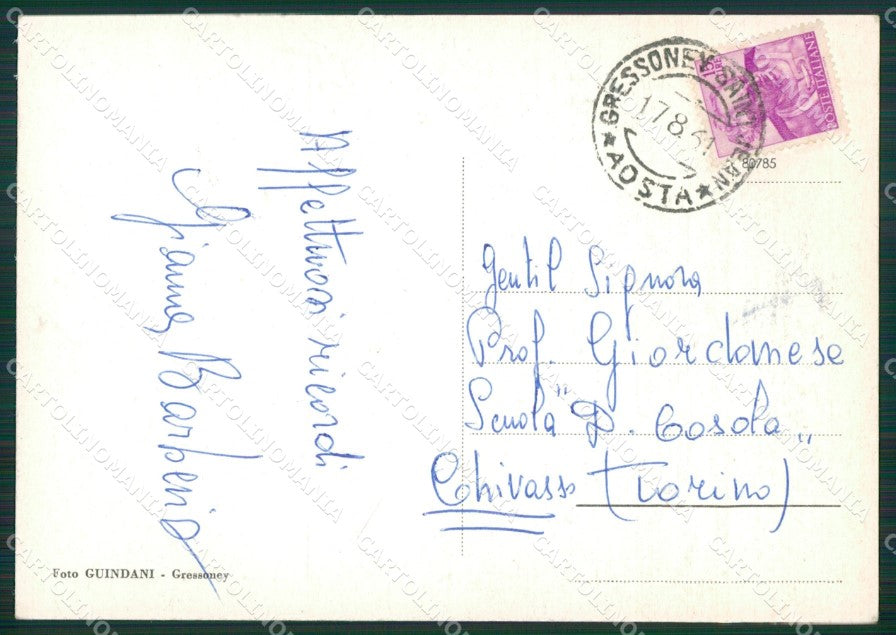 Affettuosi ricordi
Gianna Barberis
Foto GUINDANI - Gressoney
GRESSONEY SAINT JEAN
17.8.61
★ AOSTA ★
POSTE ITALIANE
80785
Gentil Signora
Prof. Giordanese
Scuola "D. Cosola"
Chivasso (Torino)
CARTOLINOMANIA